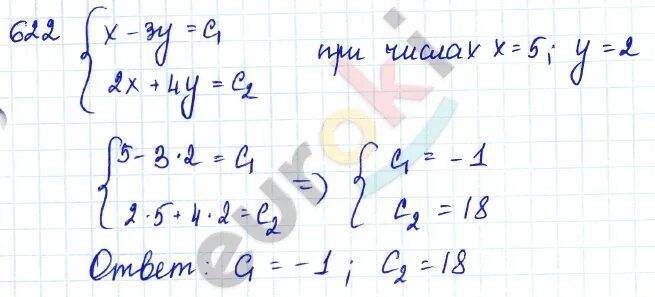 622 { x - 3y = c₁
2x + 4y = c₂
при числах x = 5; y = 2
{ 5 - 3·2 = c₁
2·5 + 4·2 = c₂
=> { c₁ = -1
c₂ = 18
Ответ: c₁ = -1; c₂ = 18
euroki